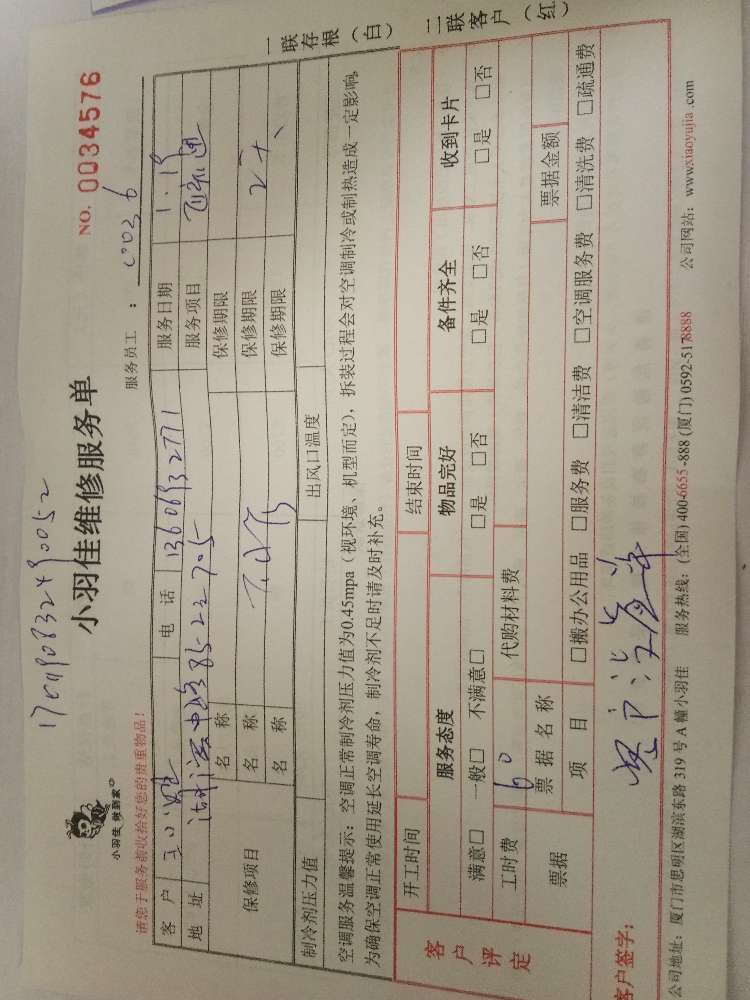 170490832490052
小羽佳 做到家
小羽佳维修服务单
NO. 0034576
请您于服务前收拾好您的贵重物品!
服务员工：0036
客户 电话 13606932771 服务日期 1.19
地址 85-22 705 服务项目
保修项目 名称 保修期限
名称 保修期限
名称 保修期限
制冷剂压力值 出风口温度
空调服务温馨提示：空调正常制冷剂压力值为0.45mpa（视环境、机型而定），拆装过程会对空调制冷或制热造成一定影响。
为确保空调正常使用延长空调寿命，制冷剂不足时请及时补充。
一联存根（白） 二联客户（红）
客户评定 开工时间 结束时间
服务态度 物品完好 备件齐全 收到卡片
满意□ 一般□ 不满意□ □是 □否 □是 □否 □是 □否
工时费 60 代购材料费
票据 票据名称 票据金额
项目 □搬办公用品 □服务费 □清洁费 □空调服务费 □清洗费 □疏通费
客户签字：
公司地址：厦门市思明区湖滨东路319号A幢小羽佳 服务热线：(全国) 400-6655-888 (厦门) 0592-5178888 公司网站：www.xiaoyujia.com